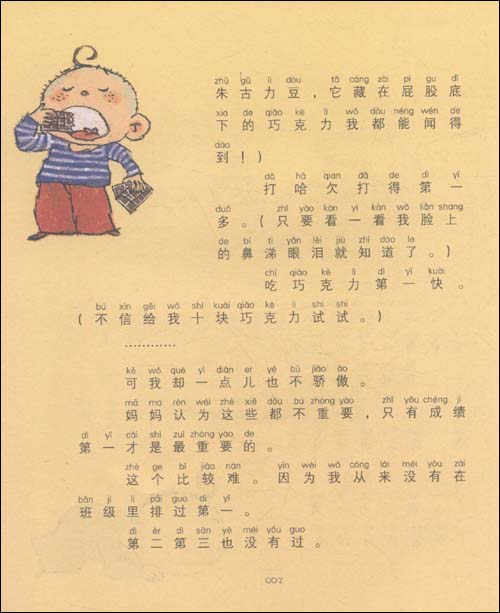 zhū gǔ lì dòu tā cáng zài pì gu dǐ
朱古力豆，它藏在屁股底
xia de qiǎo kè lì wǒ dōu néng wén de
下的巧克力我都能闻得
dào
到！）
dǎ hā qian dǎ de dì yī
打哈欠打得第一
duō zhǐ yào kàn yi kàn wǒ liǎn shang
多。（只要看一看我脸上
de bí tì yǎn lèi jiù zhī dào le
的鼻涕眼泪就知道了。）
chī qiǎo kè lì dì yī kuài
吃巧克力第一快。
bú xìn gěi wǒ shí kuài qiǎo kè lì shì shi
（不信给我十块巧克力试试。）
…………
kě wǒ què yì diǎn er yě bù jiāo ào
可我却一点儿也不骄傲。
mā ma rèn wéi zhè xiē dōu bú zhòng yào zhǐ yǒu chéng jì
妈妈认为这些都不重要，只有成绩
dì yī cái shì zuì zhòng yào de
第一才是最重要的。
zhè ge bǐ jiào nán yīn wèi wǒ cóng lái méi yǒu zài
这个比较难。因为我从来没有在
bān jí lǐ pái guo dì yī
班级里排过第一。
dì èr dì sān yě méi yǒu guo
第二第三也没有过。
002